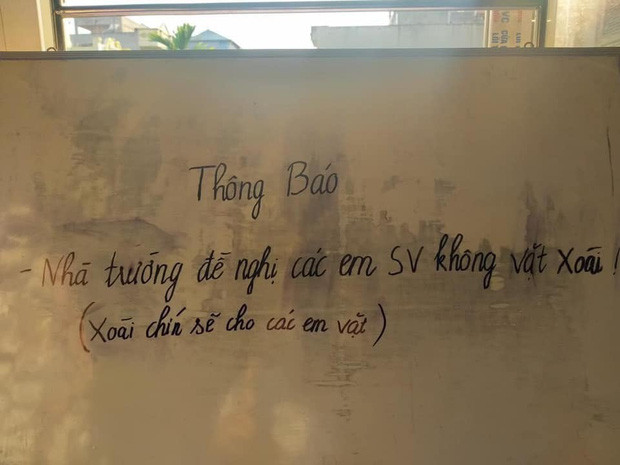 Thông Báo
- Nhà trường đề nghị các em SV không vặt Xoài!
(Xoài chín sẽ cho các em vặt)